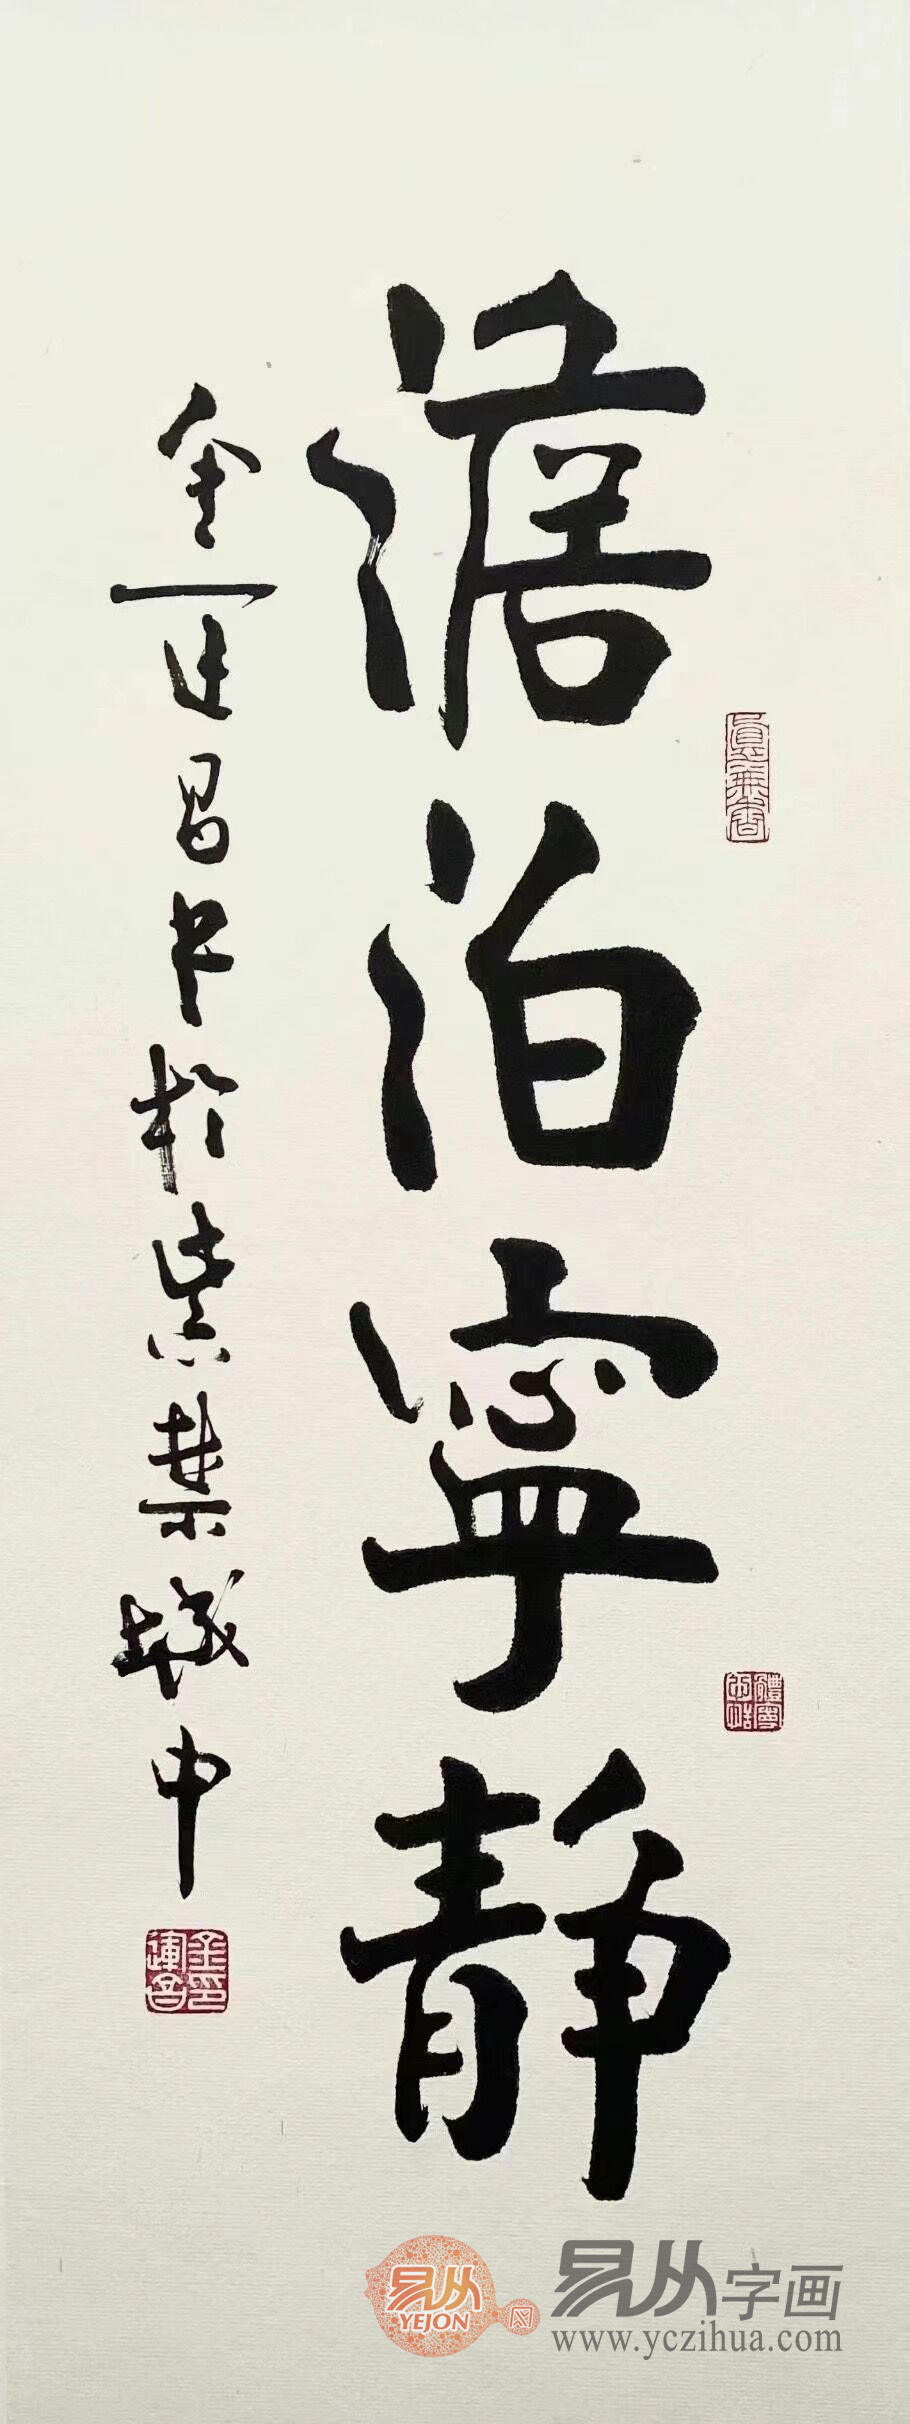 澹泊寧靜
金運昌书於紫禁城中
金運昌印
易从
YEJON
易从字画
www.yczihua.com